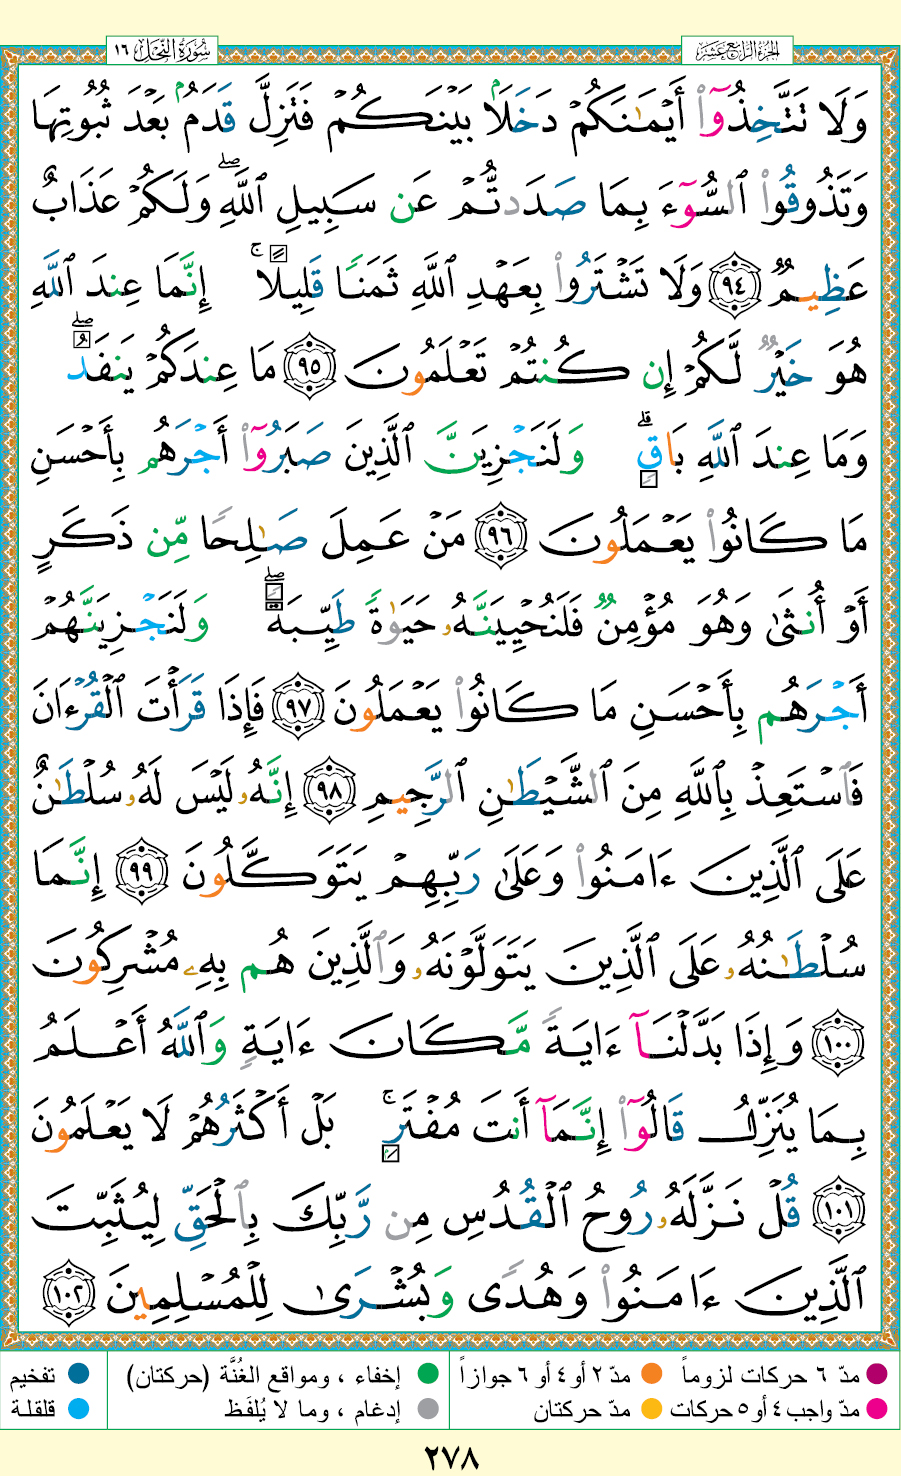 الجزء الرابع عشر
سورة النحل ١٦
وَلَا تَتَّخِذُوٓا۟ أَيْمَـٰنَكُمْ دَخَلًۢا بَيْنَكُمْ فَتَزِلَّ قَدَمٌۢ بَعْدَ ثُبُوتِهَا
وَتَذُوقُوا۟ ٱلسُّوٓءَ بِمَا صَدَدتُّمْ عَن سَبِيلِ ٱللَّهِ ۖ وَلَكُمْ عَذَابٌ
عَظِيمٌ ٩٤ وَلَا تَشْتَرُوا۟ بِعَهْدِ ٱللَّهِ ثَمَنًا قَلِيلًا ۚ إِنَّمَا عِندَ ٱللَّهِ
هُوَ خَيْرٌ لَّكُمْ إِن كُنتُمْ تَعْلَمُونَ ٩٥ مَا عِندَكُمْ يَنفَدُ ۖ
وَمَا عِندَ ٱللَّهِ بَاقٍ ۗ وَلَنَجْزِيَنَّ ٱلَّذِينَ صَبَرُوٓا۟ أَجْرَهُم بِأَحْسَنِ
مَا كَانُوا۟ يَعْمَلُونَ ٩٦ مَنْ عَمِلَ صَـٰلِحًا مِّن ذَكَرٍ
أَوْ أُنثَىٰ وَهُوَ مُؤْمِنٌ فَلَنُحْيِيَنَّهُۥ حَيَوٰةً طَيِّبَةً ۖ وَلَنَجْزِيَنَّهُمْ
أَجْرَهُم بِأَحْسَنِ مَا كَانُوا۟ يَعْمَلُونَ ٩٧ فَإِذَا قَرَأْتَ ٱلْقُرْءَانَ
فَٱسْتَعِذْ بِٱللَّهِ مِنَ ٱلشَّيْطَـٰنِ ٱلرَّجِيمِ ٩٨ إِنَّهُۥ لَيْسَ لَهُۥ سُلْطَـٰنٌ
عَلَى ٱلَّذِينَ ءَامَنُوا۟ وَعَلَىٰ رَبِّهِمْ يَتَوَكَّلُونَ ٩٩ إِنَّمَا
سُلْطَـٰنُهُۥ عَلَى ٱلَّذِينَ يَتَوَلَّوْنَهُۥ وَٱلَّذِينَ هُم بِهِۦ مُشْرِكُونَ
١٠٠ وَإِذَا بَدَّلْنَآ ءَايَةً مَّكَانَ ءَايَةٍ وَٱللَّهُ أَعْلَمُ
بِمَا يُنَزِّلُ قَالُوٓا۟ إِنَّمَآ أَنتَ مُفْتَرٍۭ ۚ بَلْ أَكْثَرُهُمْ لَا يَعْلَمُونَ
١٠١ قُلْ نَزَّلَهُۥ رُوحُ ٱلْقُدُسِ مِن رَّبِّكَ بِٱلْحَقِّ لِيُثَبِّتَ
ٱلَّذِينَ ءَامَنُوا۟ وَهُدًى وَبُشْرَىٰ لِلْمُسْلِمِينَ ١٠٢
مدّ ٦ حركات لزوماً مدّ ٢ أو ٤ أو ٦ جوازاً إخفاء ، ومواقع الغُنَّة (حركتان) تفخيم
مدّ واجب ٤ أو ٥ حركات مدّ حركتان إدغام ، وما لا يُلفَظ قلقلة
٢٧٨